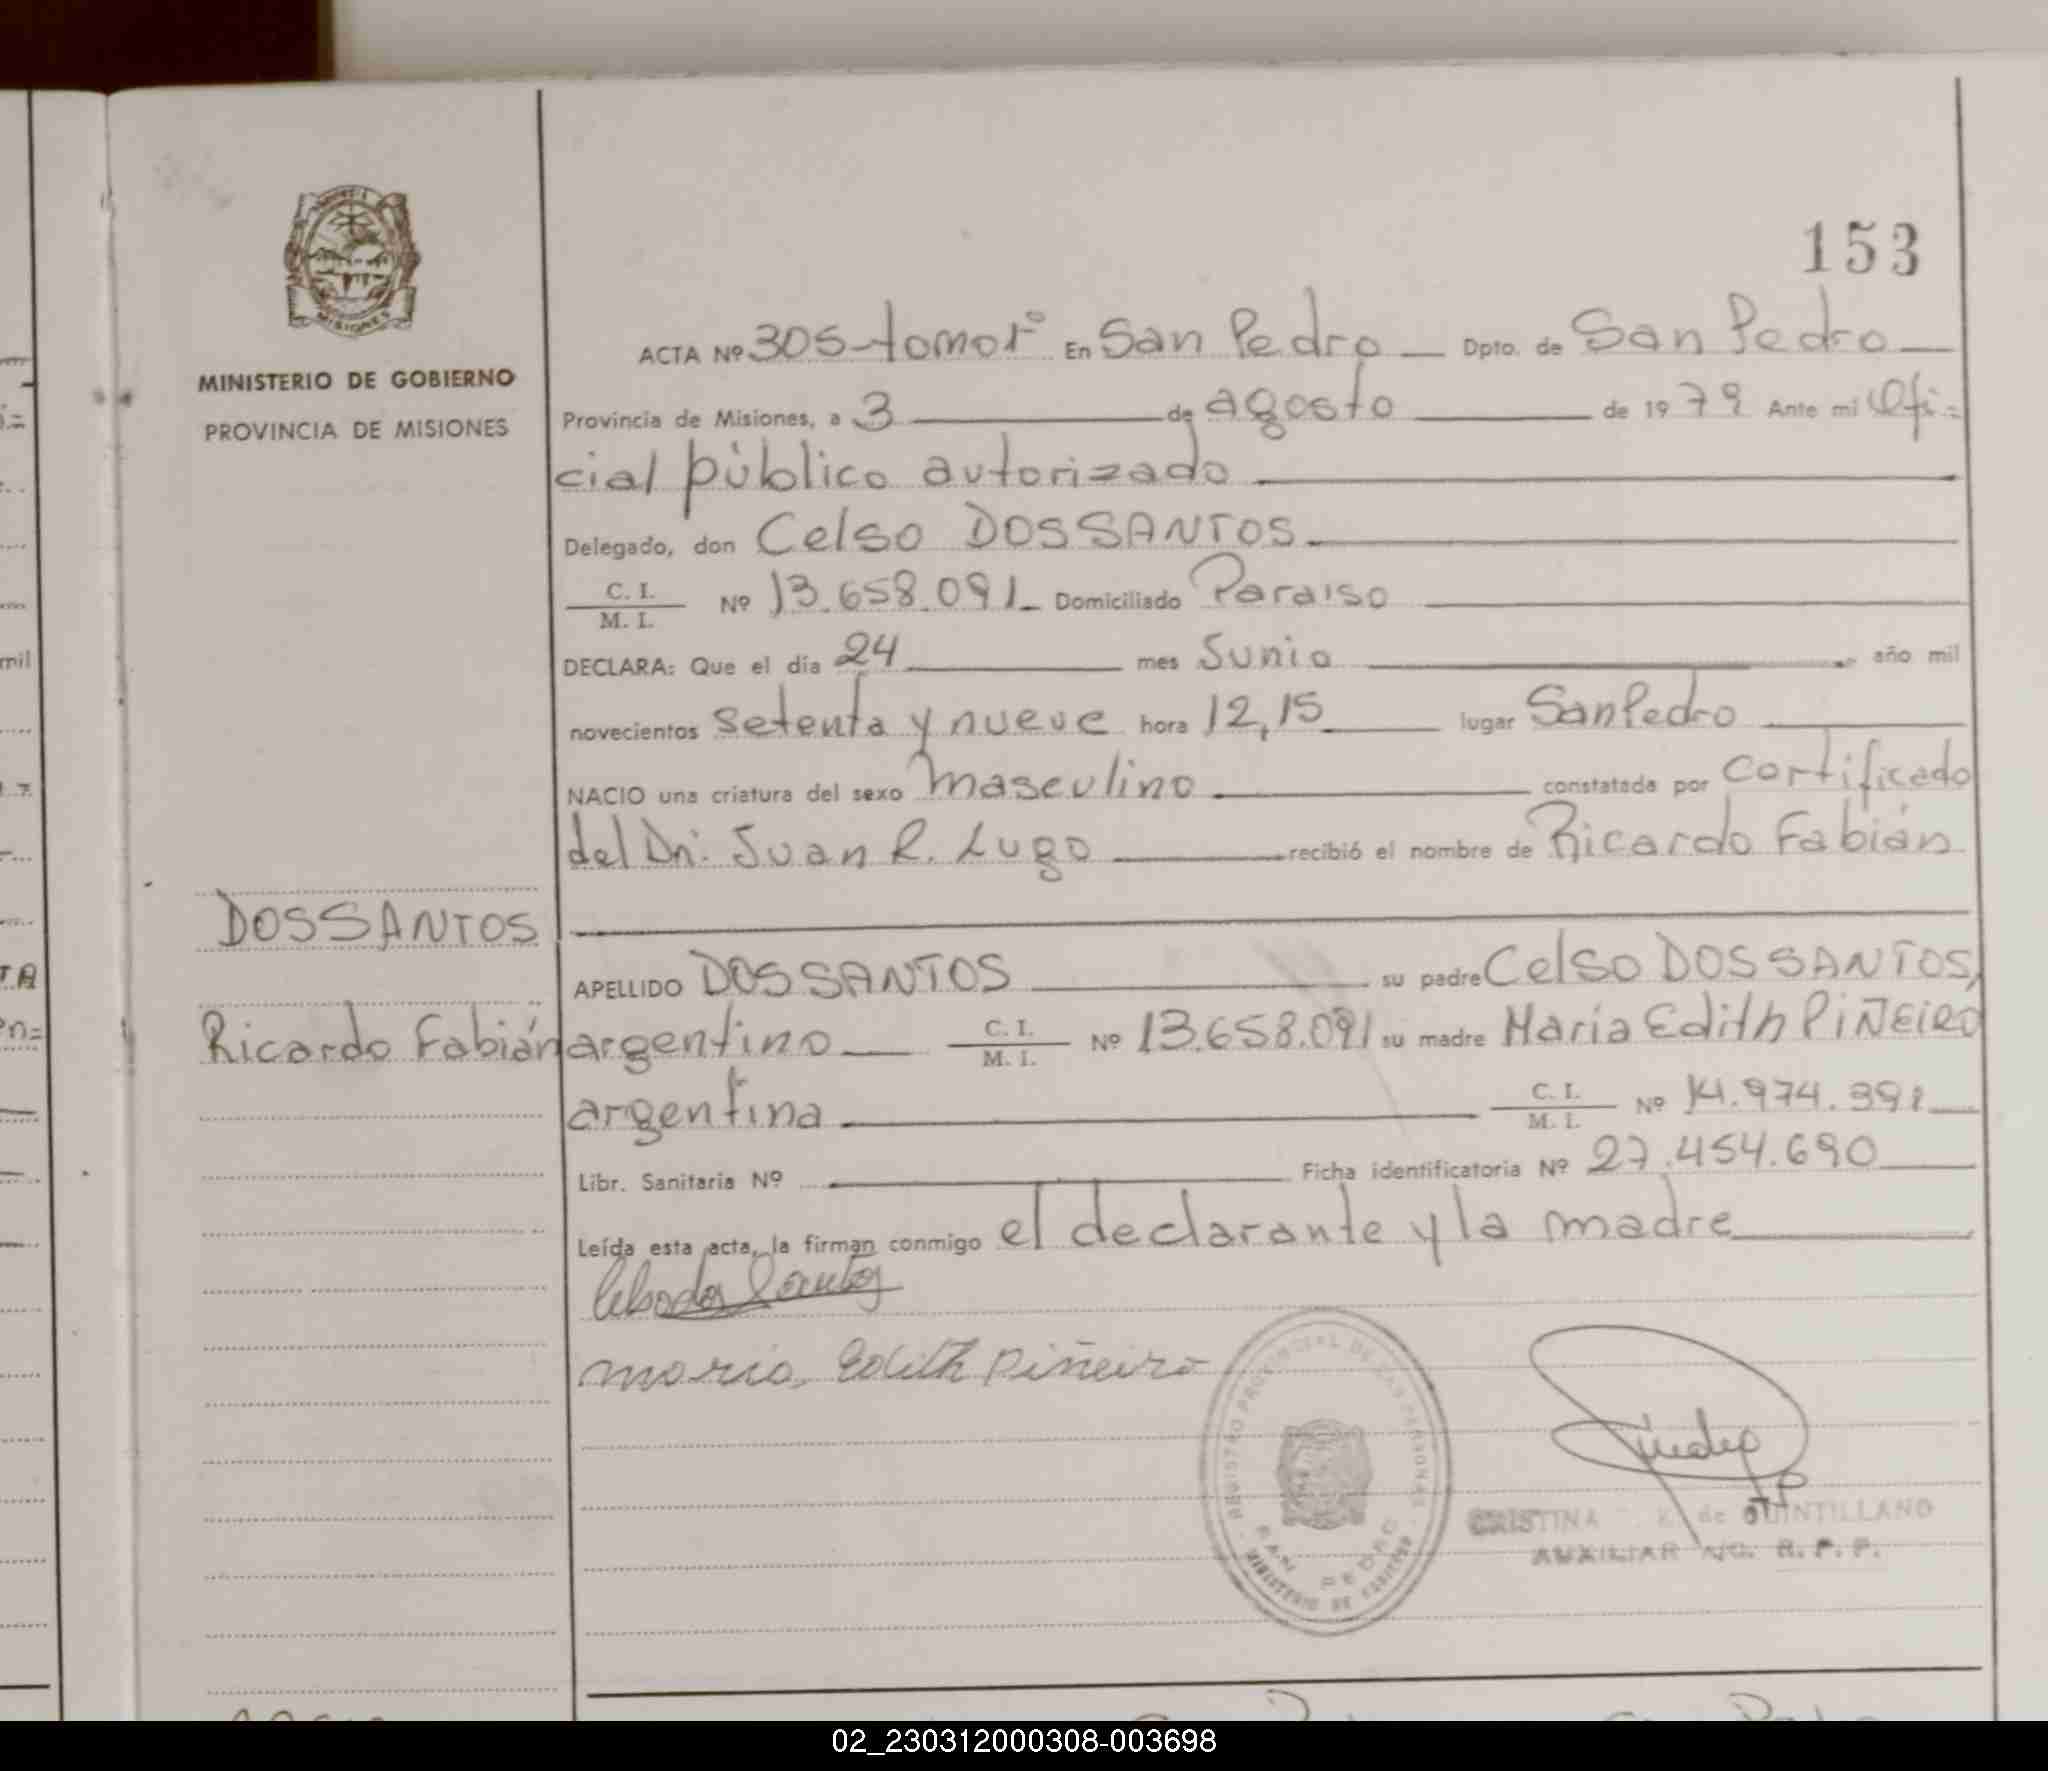 153
MINISTERIO DE GOBIERNO
PROVINCIA DE MISIONES
ACTA Nº 305-tomo1º En San Pedro Dpto. de San Pedro
Provincia de Misiones, a 3 de agosto de 1979 Ante mi Ofi=
cial público autorizado
Delegado, don Celso DOSSANTOS.
C. I.
M. I. Nº 13.658.091 Domiciliado Paraiso
DECLARA: Que el día 24 mes Junio año mil
novecientos setenta y nueve hora 12,15 lugar San Pedro
NACIO una criatura del sexo masculino constatada por certificado
del Dr. Juan R. Lugo recibió el nombre de Ricardo Fabián
DOSSANTOS
Ricardo Fabián
APELLIDO DOSSANTOS su padre Celso DOSSANTOS,
argentino C. I.
M. I. Nº 13.658.091 su madre Maria Edith PIÑEIRO
argentina C. I.
M. I. Nº 14.974.391
Libr. Sanitaria Nº Ficha identificatoria Nº 27.454.690
Leída esta acta, la firman conmigo el declarante y la madre
Celso dos Santos
Maria Edith Piñeiro
REGISTRO PROVINCIAL DE LAS PERSONAS
SAN PEDRO
MINISTERIO DE GOBIERNO
CRISTINA K. de QUINTILLANO
AUXILIAR A/C. R. P. P.
02_230312000308-003698